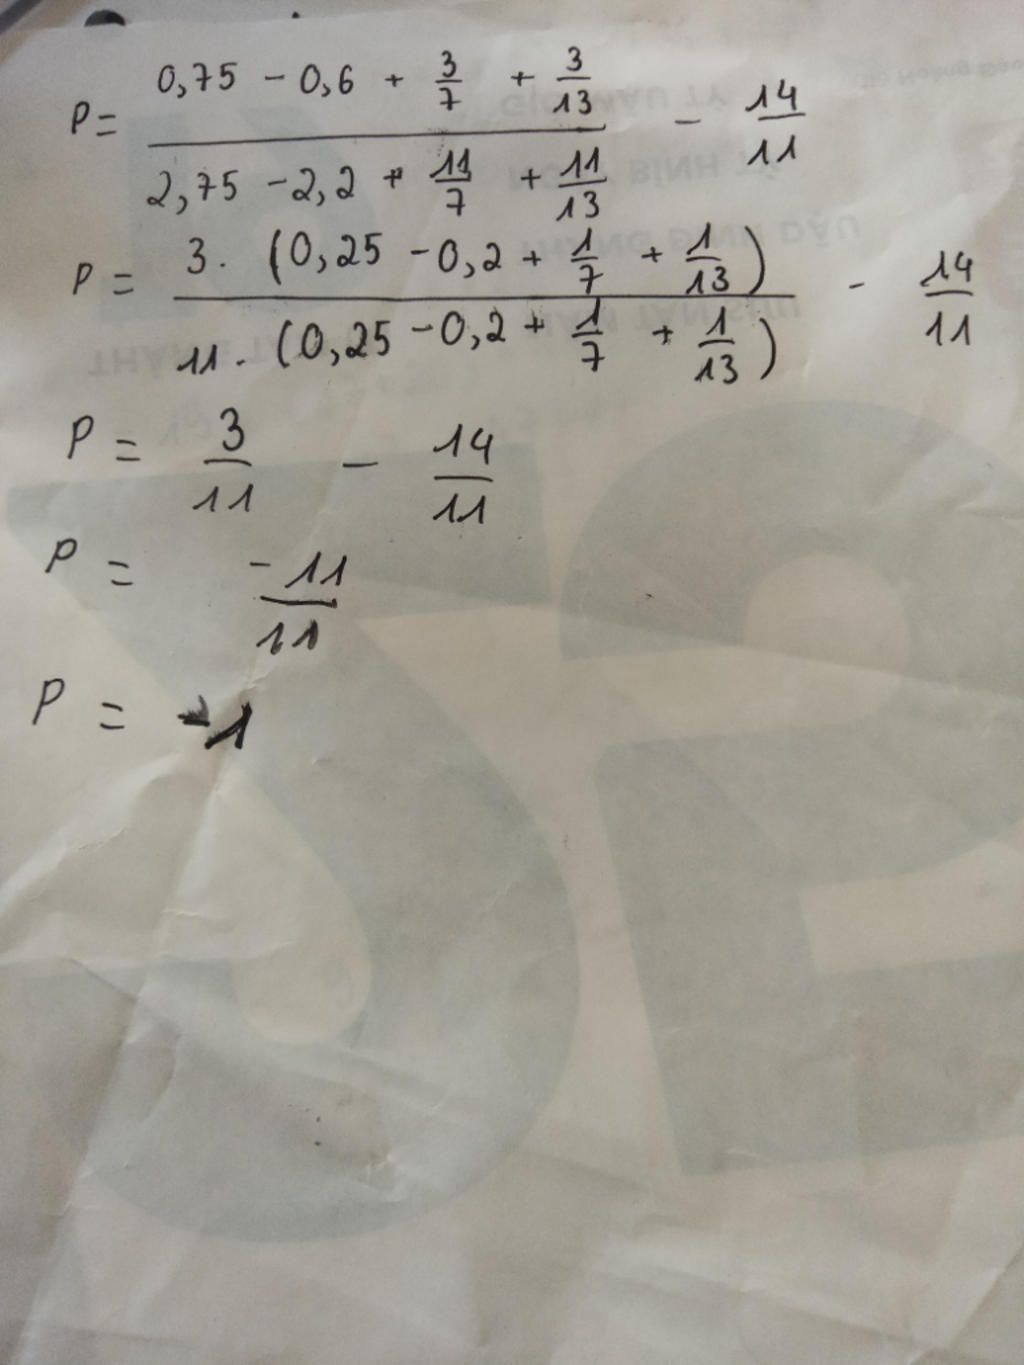 P = \frac{0,75 - 0,6 + \frac{3}{7} + \frac{3}{13}}{2,75 - 2,2 + \frac{11}{7} + \frac{11}{13}} - \frac{14}{11}
P = \frac{3. (0,25 - 0,2 + \frac{1}{7} + \frac{1}{13})}{11. (0,25 - 0,2 + \frac{1}{7} + \frac{1}{13})} - \frac{14}{11}
P = \frac{3}{11} - \frac{14}{11}
P = \frac{-11}{11}
P = -1